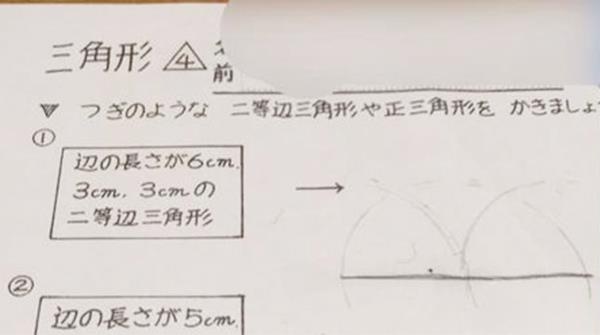 三角形 4
前
▼ つぎのような 二等辺三角形や正三角形を かきましょ
①
辺の長さが6cm.
3cm. 3cmの
二等辺三角形
→
②
辺の長さが5cm.